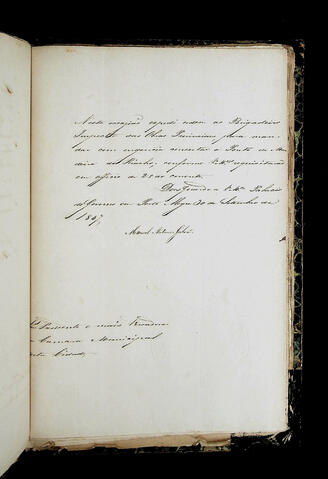 Nesta occasião expedi ordem ao Brigadeiro
Inspector das Obras Provinciaes para man
dar com urgencia concertar a Ponte de Ma
deira do Riacho, conforme V.Mces requisitarão
em officio de 25 do corrente.
Deos Guarde a V.Mces Palacio
do Governo em Porto Alegre 30 de Setembro de
1847
Manoel Antonio Galvão
Presidente e mais Vereadores
Camara Municipal
desta Cidade